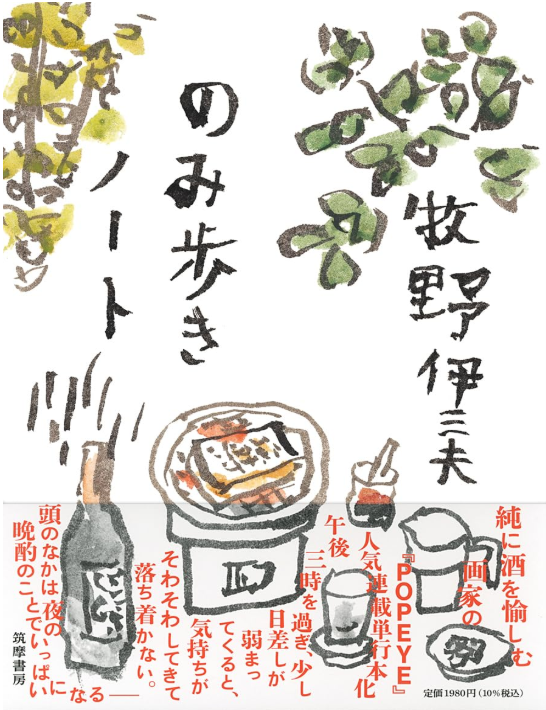 牧野伊三夫
のみ歩き
ノート
純に酒を愉しむ
画家の
『POPEYE』
人気連載単行本化
午後
三時を過ぎ、少し
日差しが
弱まっ
てくると、
気持ちが
そわそわしてきて
落ち着かない。
頭のなかは、夜の
晩酌のことでいっぱい
になる——
筑摩書房
定価1980円(10%税込)